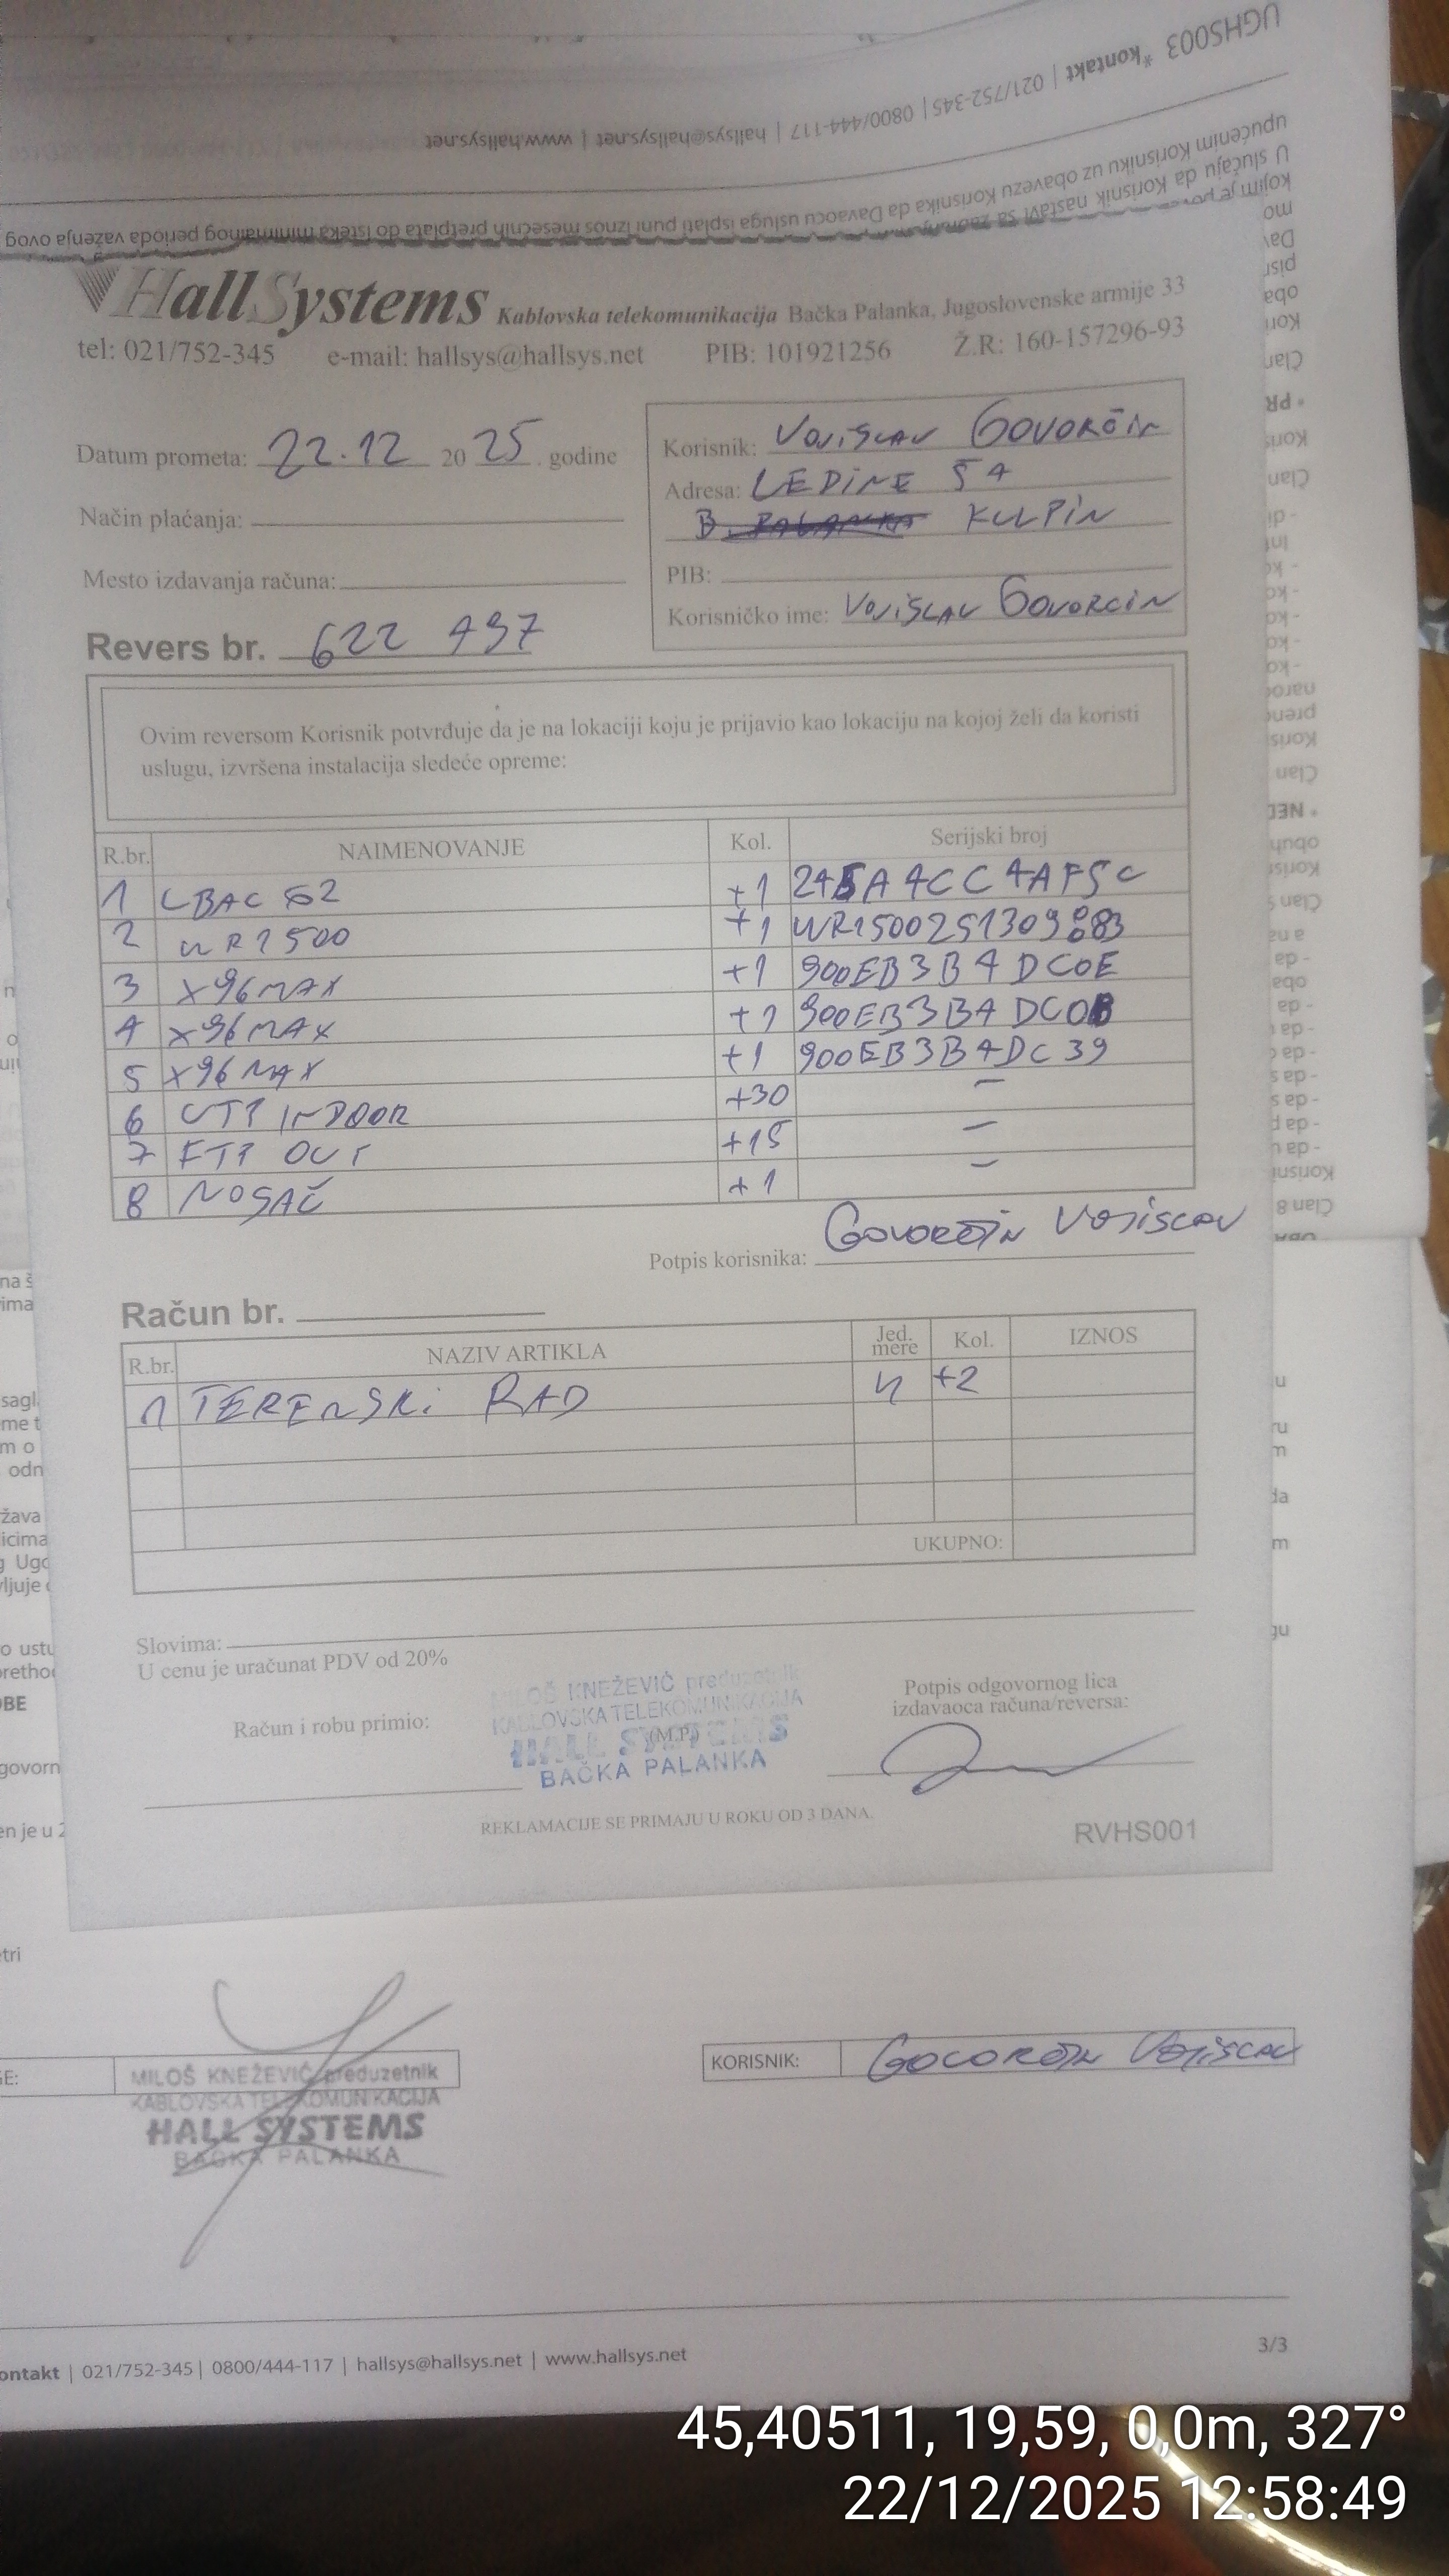 UGHS003 *kontakt | 021/752-345 | 0800/444-117 | hallsys@hallsys.net | www.hallsys.net
upućenim Korisniku uz obavezu Korisnika da Davaocu usluga isplati puni iznos mesečnih pretplata do isteka minimalnog perioda važenja ovog
U slučaju da Korisnik nastavi sa
kojim je
HallSystems Kablovska telekomunikacija Bačka Palanka, Jugoslovenske armije 33
tel: 021/752-345 e-mail: hallsys@hallsys.net PIB: 101921256 Ž.R: 160-157296-93
Datum prometa: 22.12 20 25. godine
Način plaćanja:
Mesto izdavanja računa:
Revers br. 622 497
Korisnik: Vojislav Govorčin
Adresa: LEDINE 54
B. PALANKA KULPIN
PIB:
Korisničko ime: Vojislav Govorcin
Ovim reversom Korisnik potvrđuje da je na lokaciji koju je prijavio kao lokaciju na kojoj želi da koristi
uslugu, izvršena instalacija sledeće opreme:
R.br. NAIMENOVANJE Kol. Serijski broj
1 LBAC +1 245A4CC4AF5C
2 WR1500 +1
3 X96MAX +1 900EB3B4DC0E
4 X96MAX +1 900EB3B4DC0B
5 X96MAX +1 900EB3B4DC39
6 UTP INDOOR +30 –
7 FTP OUT +15 –
8 NOSAČ +1 –
Potpis korisnika: Govorčin Vojislav
Račun br.
R.br. NAZIV ARTIKLA Jed. mere Kol. IZNOS
1 TERENSKI RAD h +2
UKUPNO:
Slovima:
U cenu je uračunat PDV od 20%
Račun i robu primio:
MILOŠ KNEŽEVIĆ preduzetnik
KABLOVSKA TELEKOMUNIKACIJA
HALL SYSTEMS
(M.P.)
BAČKA PALANKA
Potpis odgovornog lica
izdavaoca računa/reversa:
REKLAMACIJE SE PRIMAJU U ROKU OD 3 DANA.
RVHS001
MILOŠ KNEŽEVIĆ preduzetnik
KABLOVSKA TELEKOMUNIKACIJA
HALL SYSTEMS
BAČKA PALANKA
KORISNIK: Govorčin Vojislav
ontakt | 021/752-345 | 0800/444-117 | hallsys@hallsys.net | www.hallsys.net
3/3
45,40511, 19,59, 0,0m, 327°
22/12/2025 12:58:49